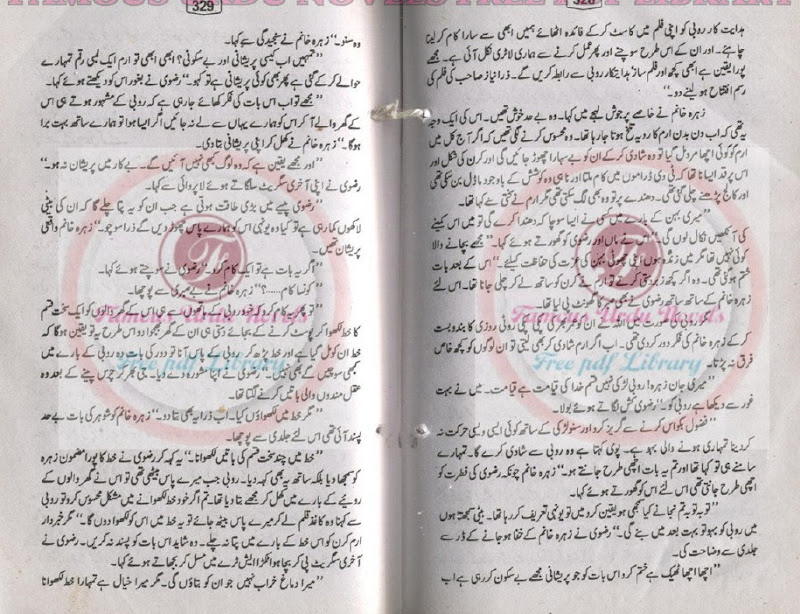 FAMOUS URDU NOVELS FREE PDF LIBRARY
328
ہدایت کار روبی کو اپنی فلم میں کاسٹ کر کے فائدہ اٹھائے ہمیں ابھی سے سارا کام کر لینا
چاہئے۔ اور ان کے اس طرح سوچنے اور پھر عمل کرنے سے ہماری لاٹری نکل آئی ہے۔ مجھے
پورا یقین ہے ابھی کچھ اور فلم ساز ہدایتکار روبی سے رابطہ کریں گے۔ ذرا نیاز صاحب کی فلم کی
رسم افتتاح ہو لینے دو۔"
زہرہ خانم نے خاصے پر جوش لہجے میں کہا۔ وہ بے حد خوش تھیں۔ اس کی ایک وجہ
یہ تھی کہ اب دن بدن ارم کا رویہ تلخ ہوتا جا رہا تھا۔ وہ محسوس کرنے لگی تھیں کہ اگر آج کل میں
ارم کو کوئی اچھا مرد مل گیا تو وہ شادی کر کے ان کو بے سہارا چھوڑ جائیں گی اور کرن کی شکل اور
اس پر قد ایسا نا تھا کہ ٹی وی ڈراموں میں کام ملتا اور نا ہی وہ کوشش کے باوجود ماڈل بن سکی تھی
اور کالج پڑھنے چلی گئی تھی۔ دھندے پر تو وہ بھی لگ سکتی تھی مگر ارم نے سختی سے کہا تھا۔
"میری بہن کے بارے میں کسی نے ایسا سوچا کہ دھندا کرے گی تو میں اس کمینے
کی آنکھیں نکال لوں گی۔" اس نے ماں اور رضوی کو گھورتے ہوئے کہا۔ "مجھے بچانے والا
کوئی نہیں تھا مگر میں زندہ ہوں اپنی چھوٹی بہن کی عزت کی حفاظت کیلئے۔" اس کے بعد بات
ختم ہو گئی تھی۔ وہ اگر کچھ زبردستی کرتے تو ارم نے کرن کو ساتھ لے کر چلی جانا تھا۔ اس لئے
زہرہ خانم کے ساتھ ساتھ رضوی نے بھی صبر کا گھونٹ پی لیا تھا۔
مگر روبی کی صورت میں
روزی کا بندوبست
کر کے زہرہ خانم کی فکر دور کر دی تھی۔ اب اگر ارم شادی کر بھی لیتی تو ان لوگوں کو کچھ خاص
فرق نہ پڑتا۔
"میری جان زہرہ! روبی لڑکی نہیں قسم خدا کی قیامت ہے قیامت۔ میں نے بہت
غور سے دیکھا ہے روبی کو۔" رضوی کش لگاتے ہوئے بولا۔
"فضول بکواس کرنے سے گریز کرو اور سنو لڑکی کے ساتھ کوئی ایسی ویسی حرکت نہ
کر دینا تمہاری ہونے والی بہو ہے۔ پوی کہتا ہے وہ روبی سے شادی کرے گا۔ تمہارے
سامنے ہی تو کہا تھا اور تم یہ بات اچھی طرح جانتے ہو۔" زہرہ خانم چونکہ رضوی کی فطرت کو
اچھی طرح جانتی تھی اس لئے اس کو گھورتے ہوئے کہا۔
"توبہ توبہ تم نجانے کیا سمجھی ہو یقین کرو میں تو یونہی تعریف کر رہا تھا۔ بیٹی سمجھتا ہوں
میں روبی کو بہو تو بہت بعد میں بنے گی۔" رضوی نے زہرہ خانم کے خفا ہو جانے کے ڈر سے
جلدی سے وضاحت کی۔
"اچھا اچھا ٹھیک ہے ختم کرو اس بات کو جو پریشانی مجھے بے سکون کر رہی ہے اب
329
وہ سنو۔" زہرہ خانم نے سنجیدگی سے کہا۔
"تمہیں اب کیسی پریشانی اور بے سکونی؟ ابھی ابھی تو ارم ایک لمبی رقم تمہارے
حوالے کر کے گئی ہے پھر بھی کوئی پریشانی ہے تو کہو۔" رضوی نے بغور اس کو دیکھتے ہوئے کہا۔
"مجھے تو اب اس بات کی فکر کھائے جا رہی ہے کہ روبی کے مشہور ہوتے ہی اس
کے گھر والے آ کر اس کو ہمارے یہاں سے لے نہ جائیں اگر ایسا ہوا تو ہمارے ساتھ بہت برا
ہوگا۔" زہرہ خانم نے کھل کر اپنی پریشانی بتا دی۔
"اور مجھے یقین ہے کہ وہ لوگ کبھی نہیں آئیں گے۔ بے کار میں پریشان نہ ہو۔"
رضوی نے اپنی آخری سگریٹ سلگاتے ہوئے لاپروائی سے کہا۔
"رضوی پیسے میں بڑی طاقت ہوتی ہے جب ان کو یہ پتا چلے گا کہ ان کی بیٹی
لاکھوں کما رہی ہے تو کیا وہ یونہی اس کو ہمارے پاس چھوڑ دیں گے ذرا سوچو۔" زہرہ خانم واقعی
پریشان تھیں۔
"اگر یہ بات ہے تو ایک کام کرو۔" رضوی نے سوچتے ہوئے کہا۔
"کونسا کام......؟" زہرہ خانم نے بے صبری سے پوچھا۔
"تو پھر یہ کام کرو
گھر والوں کو ایک سخت قسم
کا خط لکھوا کر پوسٹ کرنے کے بجائے دستی ہی ان کے گھر بھجوا دو اس طرح یہ تو یقین ہوگا کہ
خط ان کو مل گیا ہے اور خط پڑھ کر روبی کے پاس آنا تو دور کی بات وہ روبی کے بارے میں
کبھی سوچیں گے بھی نہیں۔ رضوی نے اپنا مشورہ دے دیا۔
چرس پینے کے بعد وہ
عقل مندوں والی باتیں کرنے لگتا تھا۔
"مگر خط میں لکھواؤں کیا۔ اب ذرا یہ بھی بتا دو۔" زہرہ خانم کو شوہر کی بات بے حد
پسند آئی تھی اس لئے جلدی سے پوچھا۔
"خط میں چند سخت قسم کی باتیں لکھوانا۔" یہ کہہ کر رضوی نے خط کا پورا مضمون زہرہ
کو سمجھا دیا بلکہ ساتھ یہ بھی کہہ دیا۔ روبی جب میرے پاس بیٹھی تھی تو اس نے گھر والوں کے
رویئے کے بارے میں کھل کر مجھے بتا دیا تھا۔ تم اگر خود خط لکھوانے میں مشکل محسوس کرو تو روبی
سے کہنا وہ کاغذ قلم لے کر میرے پاس بیٹھ جائے تو یہ خط میں اس کو لکھوا دوں گا۔" مگر خبردار
ارم کرن کو اس خط کے بارے میں پتا نہ چلے۔ وہ شاید اس بات کو پسند نہ کریں۔ رضوی نے
آخری سگریٹ پی کر بچا ہوا ٹکڑا ایش ٹرے میں مسل کر بجھاتے ہوئے کہا۔
"میرا دماغ خراب نہیں جو ان کو بتاؤں گی۔ مگر میرا خیال ہے تمہارا خط لکھوانا
Famous Urdu Novels
Free pdf Library
Famous Urdu Novels
Free pdf Library